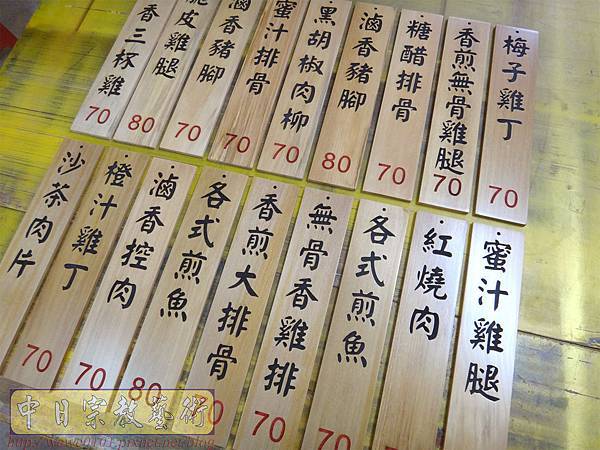 梅子雞丁
70
香煎無骨雞腿
70
糖醋排骨
70
滷香豬腳
80
黑胡椒肉柳
70
蜜汁排骨
70
滷香豬腳
70
脆皮雞腿
80
香三杯雞
70
蜜汁雞腿
紅燒肉
70
各式煎魚
70
無骨香雞排
70
香煎大排骨
70
各式煎魚
70
滷香控肉
80
橙汁雞丁
70
沙茶肉片
70
中日宗教藝術